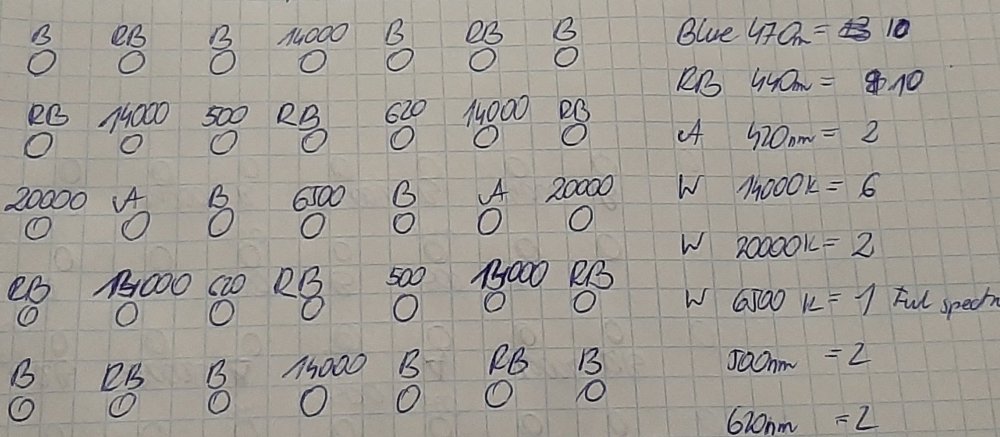 B RB B 14000 B RB B
RB 14000 500 RB 620 14000 RB
20000 A B 6500 B A 20000
RB 14000 620 RB 500 14000 RB
B RB B 14000 B RB B
Blue 470m = 10
RB 440m = 10
A 420nm = 2
W 14000K = 6
W 20000K = 2
W 6500 K = 1 Ful spectr
500nm = 2
620nm = 2